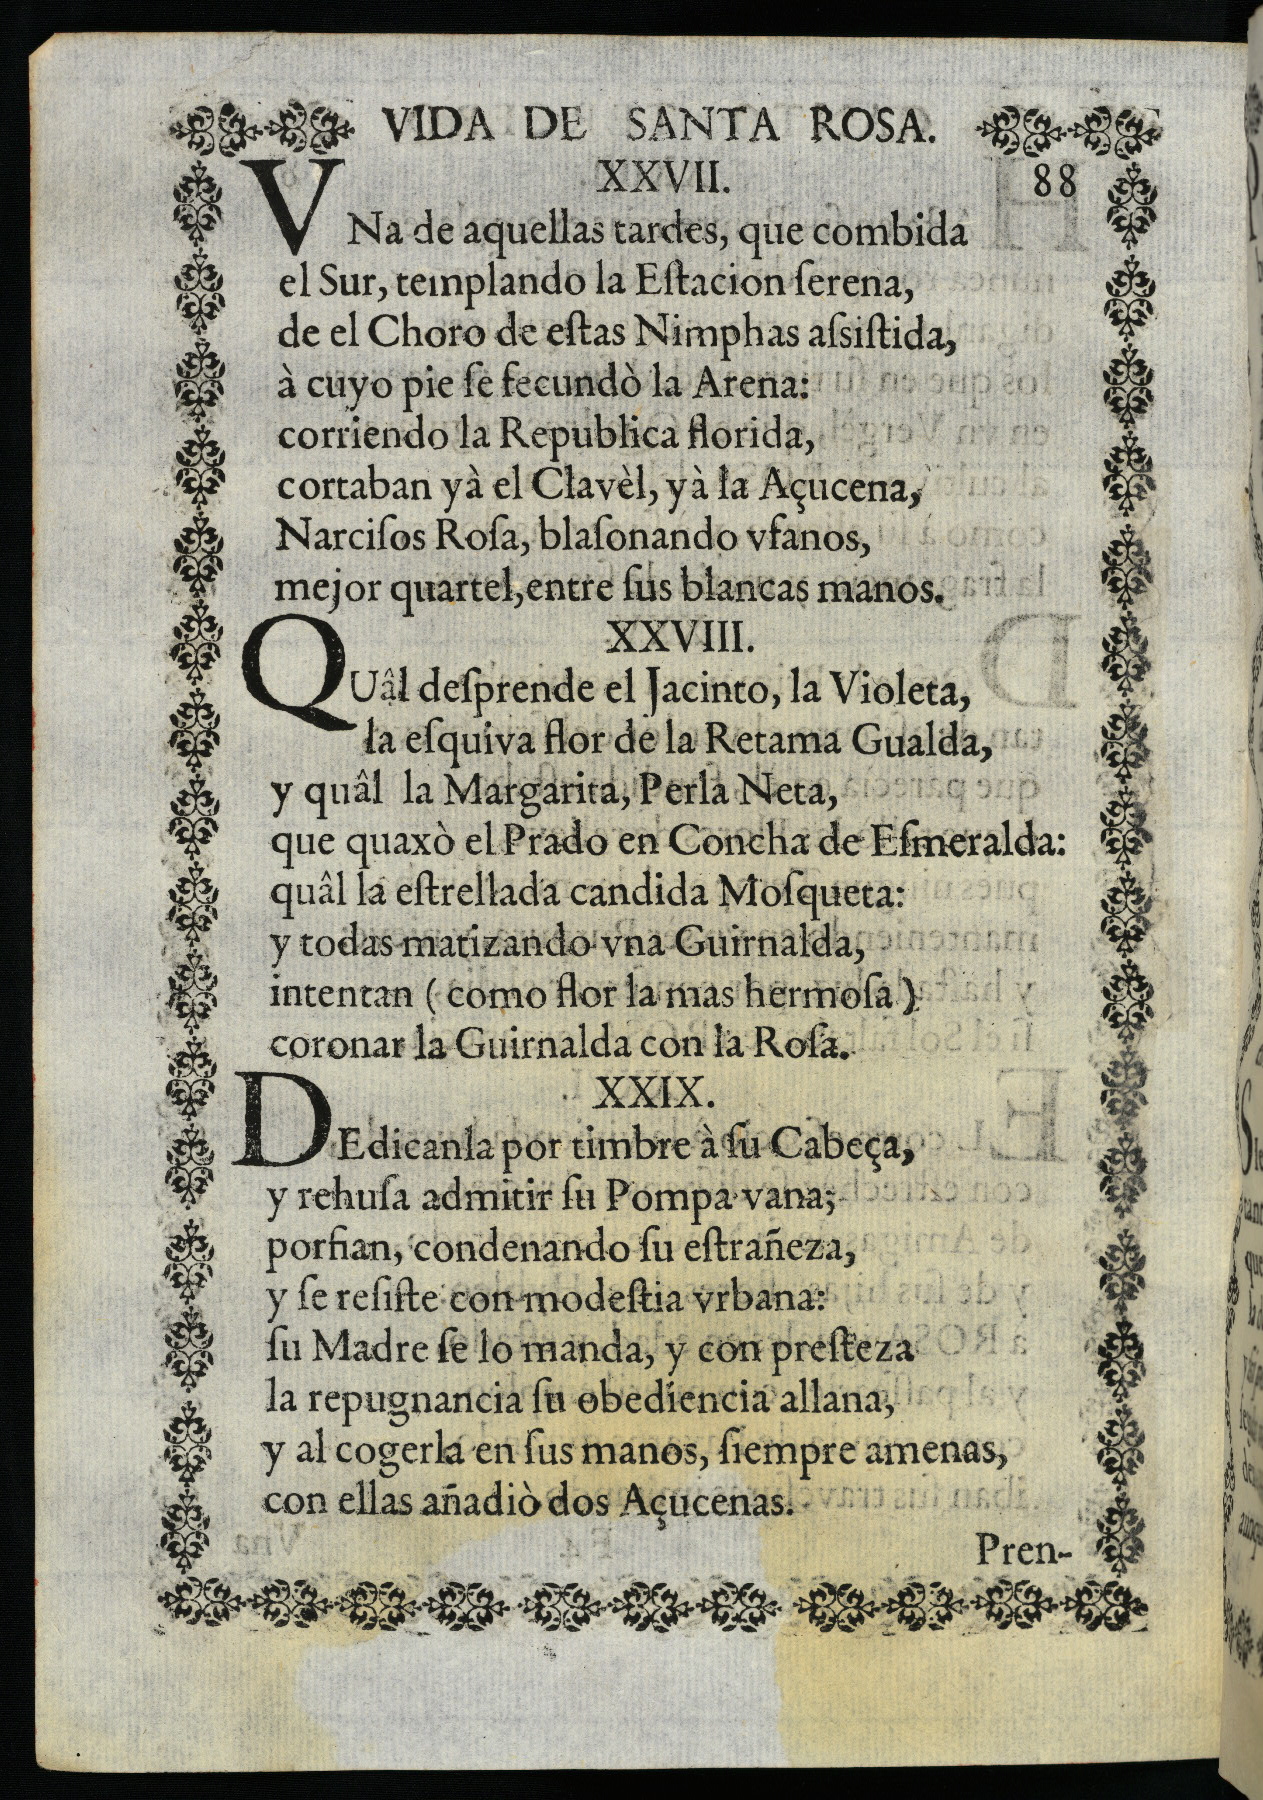 VIDA DE SANTA ROSA.
XXVII. 88
VNa de aquellas tardes, que combida
el Sur, templando la Eſtacion ſerena,
de el Choro de eſtas Nimphas aſsiſtida,
à cuyo pie ſe fecundò la Arena:
corriendo la Republica florida,
cortaban yà el Clavèl, yà la Açucena,
Narciſos Roſa, blaſonando vfanos,
mejor quartel, entre ſus blancas manos.
XXVIII.
QUâl deſprende el Jacinto, la Violeta,
la eſquiva flor de la Retama Gualda,
y quâl la Margarita, Perla Neta,
que quaxò el Prado en Concha de Eſmeralda:
quâl la eſtrellada candida Moſqueta:
y todas matizando vna Guirnalda,
intentan ( como flor la mas hermoſa )
coronar la Guirnalda con la Roſa.
XXIX.
DEdicanla por timbre à ſu Cabeça,
y rehuſa admitir ſu Pompa vana;
porfian, condenando ſu eſtrañeza,
y ſe reſiſte con modeſtia vrbana:
ſu Madre ſe lo manda, y con preſteza
la repugnancia ſu obediencia allana,
y al cogerla en ſus manos, ſiempre amenas,
con ellas añadiò dos Açucenas.
Pren-